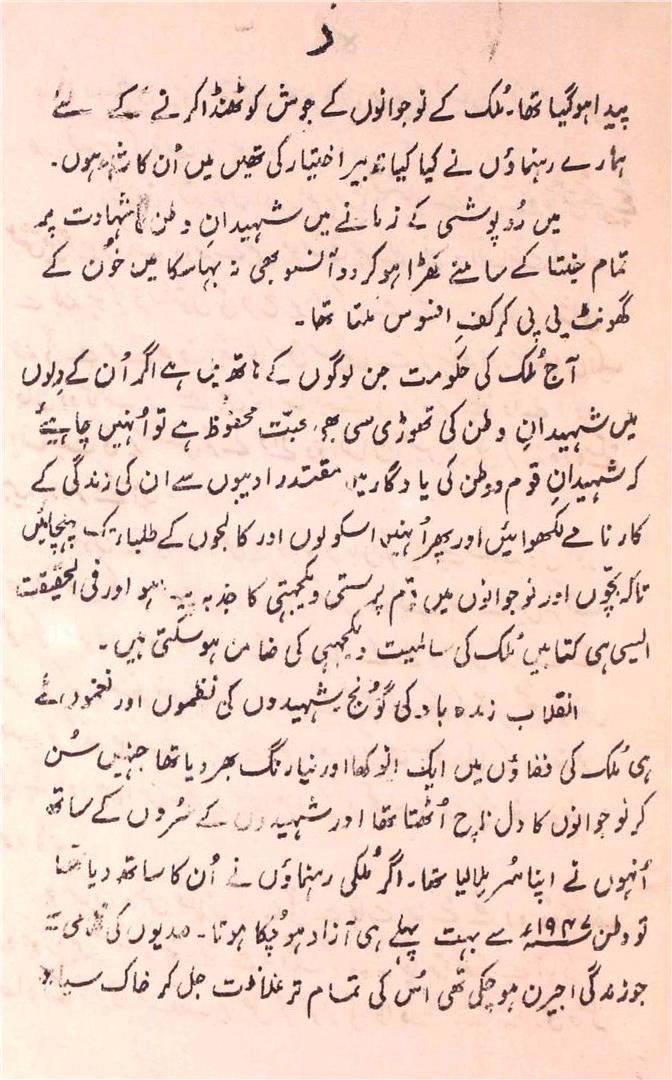 ز
پیدا ہوگیا تھا۔ مُلک کے نوجوانوں کے جوش کو ٹھنڈا کرنے کے لئے
ہمارے رہنماؤں نے کیا کیا تدبیر اختیار کی تھیں میں اُن کا شاہد ہوں۔
میں رُوپوشی کے زمانے میں شہیدانِ وطن کی شہادت پر
تمام جنتا کے سامنے کھڑا ہو کر دو آنسو بھی نہ بہا سکا میں خوُن کے
گھونٹ پی پی کر کفِ افسوس ملتا تھا۔
آج مُلک کی حکومت جن لوگوں کے ہاتھ میں ہے اگر اُن کے دِلوں
میں شہیدانِ وطن کی تھوڑی سی بھی محبّت محفوظ ہے تو اُنہیں چاہیئے
کہ شہیدانِ قوم و وطن کی یادگار میں مقتدر ادیبوں سے ان کی زندگی کے
کارنامے لکھوائیں اور پھر اُنہیں اسکولوں اور کالجوں کے طلباء تک پہنچائیں
تاکہ بچّوں اور نوجوانوں میں قوم پرستی و یکجہتی کا جذبہ پیدا ہو اور فی الحقیقت
ایسی ہی کتابیں مُلک کی سالمیت و یکجہتی کی ضامن ہوسکتی ہیں۔
انقلاب زندہ باد کی گوُنج شہیدوں کی نظموں اور نغموں نے
ہی مُلک کی فضاؤں میں ایک انوکھا اور نیا رنگ بھر دیا تھا جنہیں سُن
کر نوجوانوں کا دل ناچ اُٹھتا تھا اور شہیدوں کے سُروں کے ساتھ
اُنہوں نے اپنا سُر مِلا لیا تھا۔ اگر مُلکی رہنماؤں نے اُن کا ساتھ دیا ہوتا
تو وطن ۱۹۴۷ء سے بہت پہلے ہی آزاد ہو چُکا ہوتا۔ صدیوں کی غلامی سے
جو زندگی اجیرن ہو چکی تھی اُس کی تمام تر غلاظت جل کر خاک سیاہ